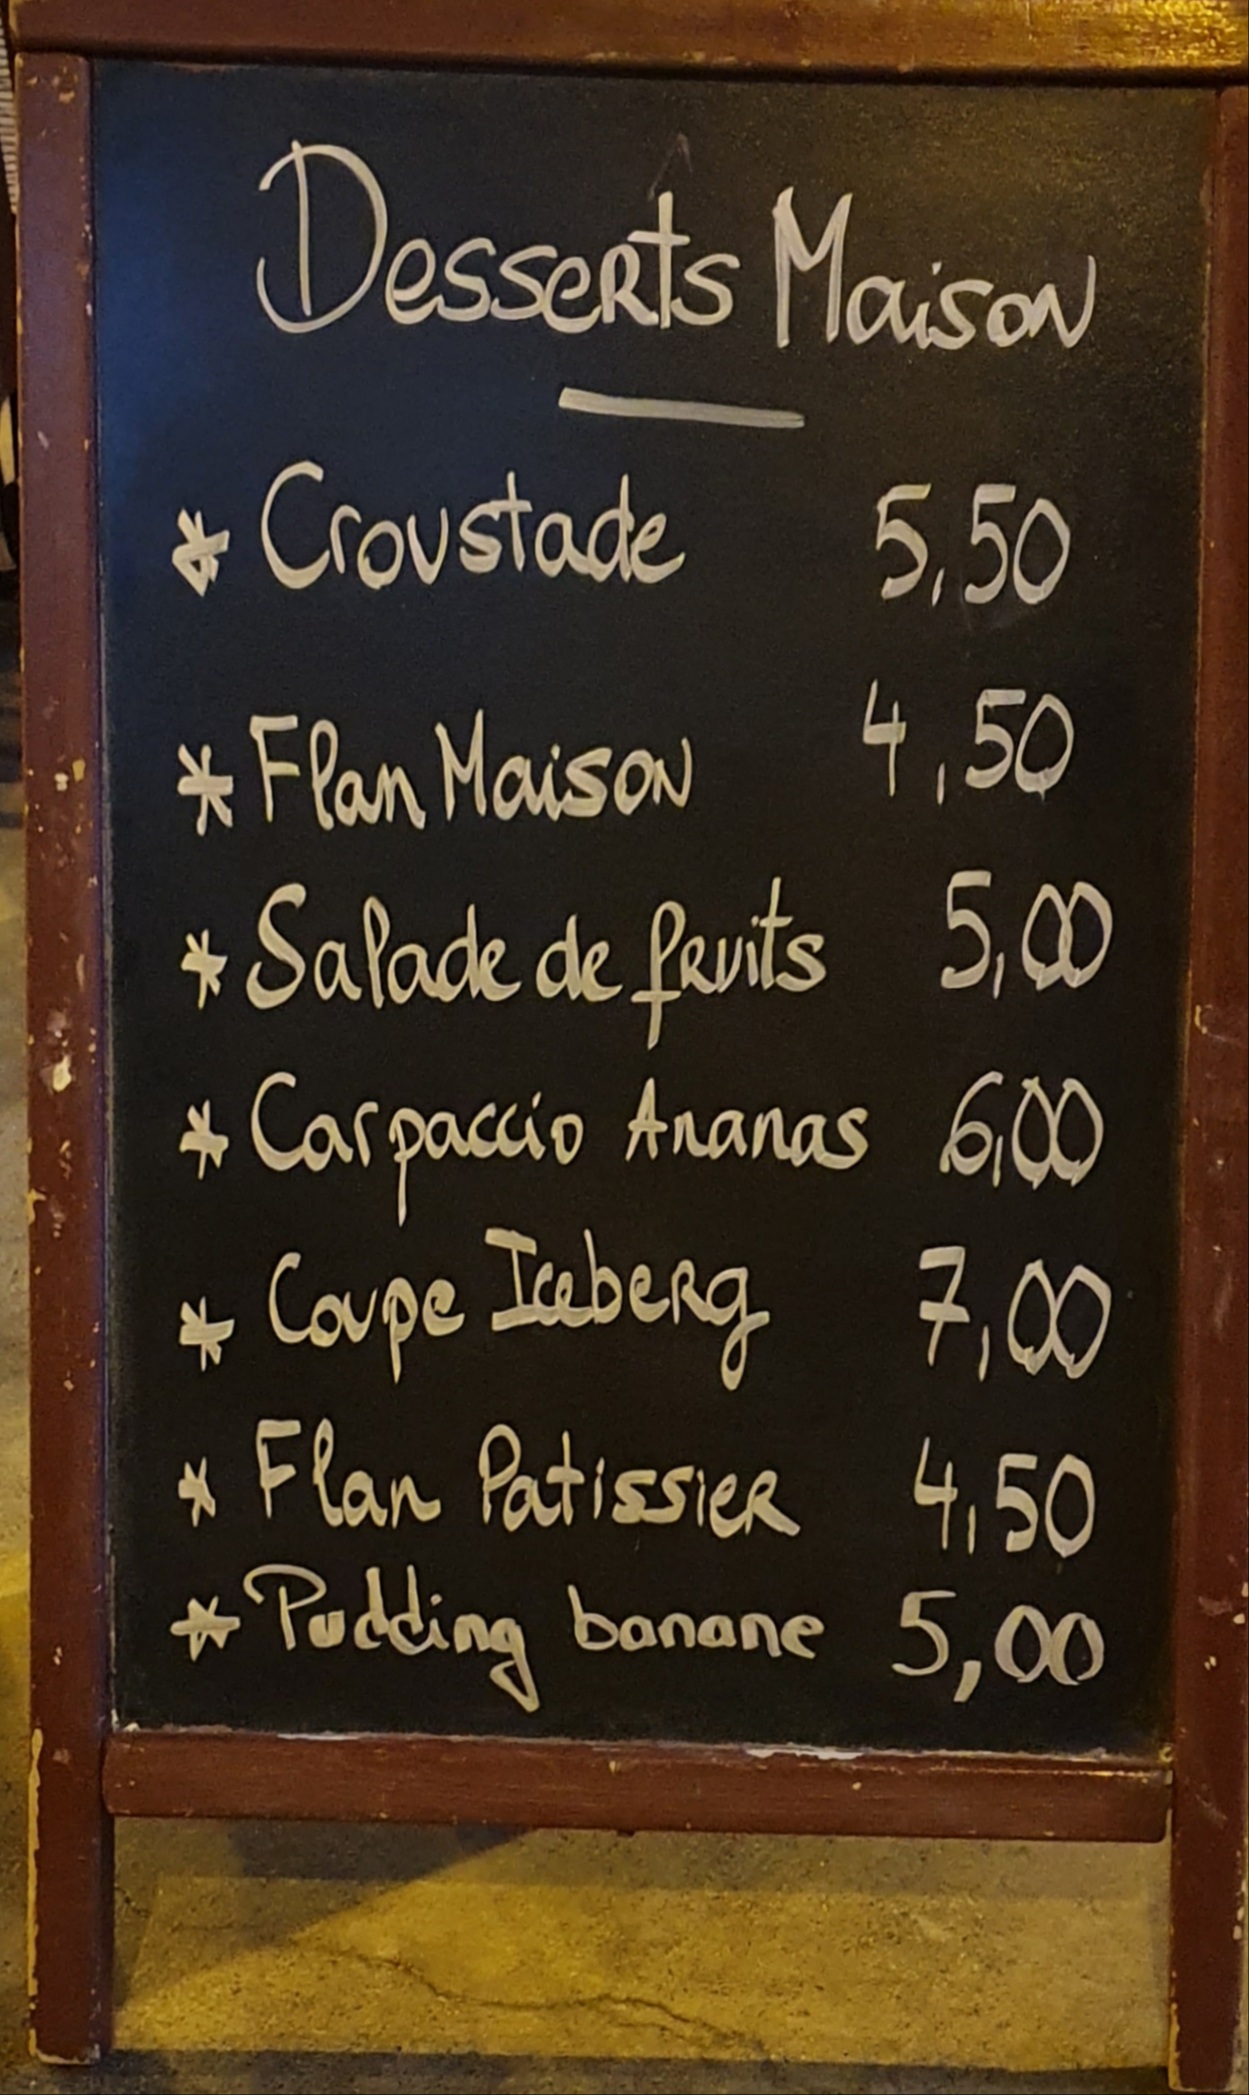 Desserts Maison
* Croustade 5,50
* Flan Maison 4,50
* Salade de fruits 5,00
* Carpaccio Ananas 6,00
* Coupe Iceberg 7,00
* Flan Patissier 4,50
* Pudding banane 5,00